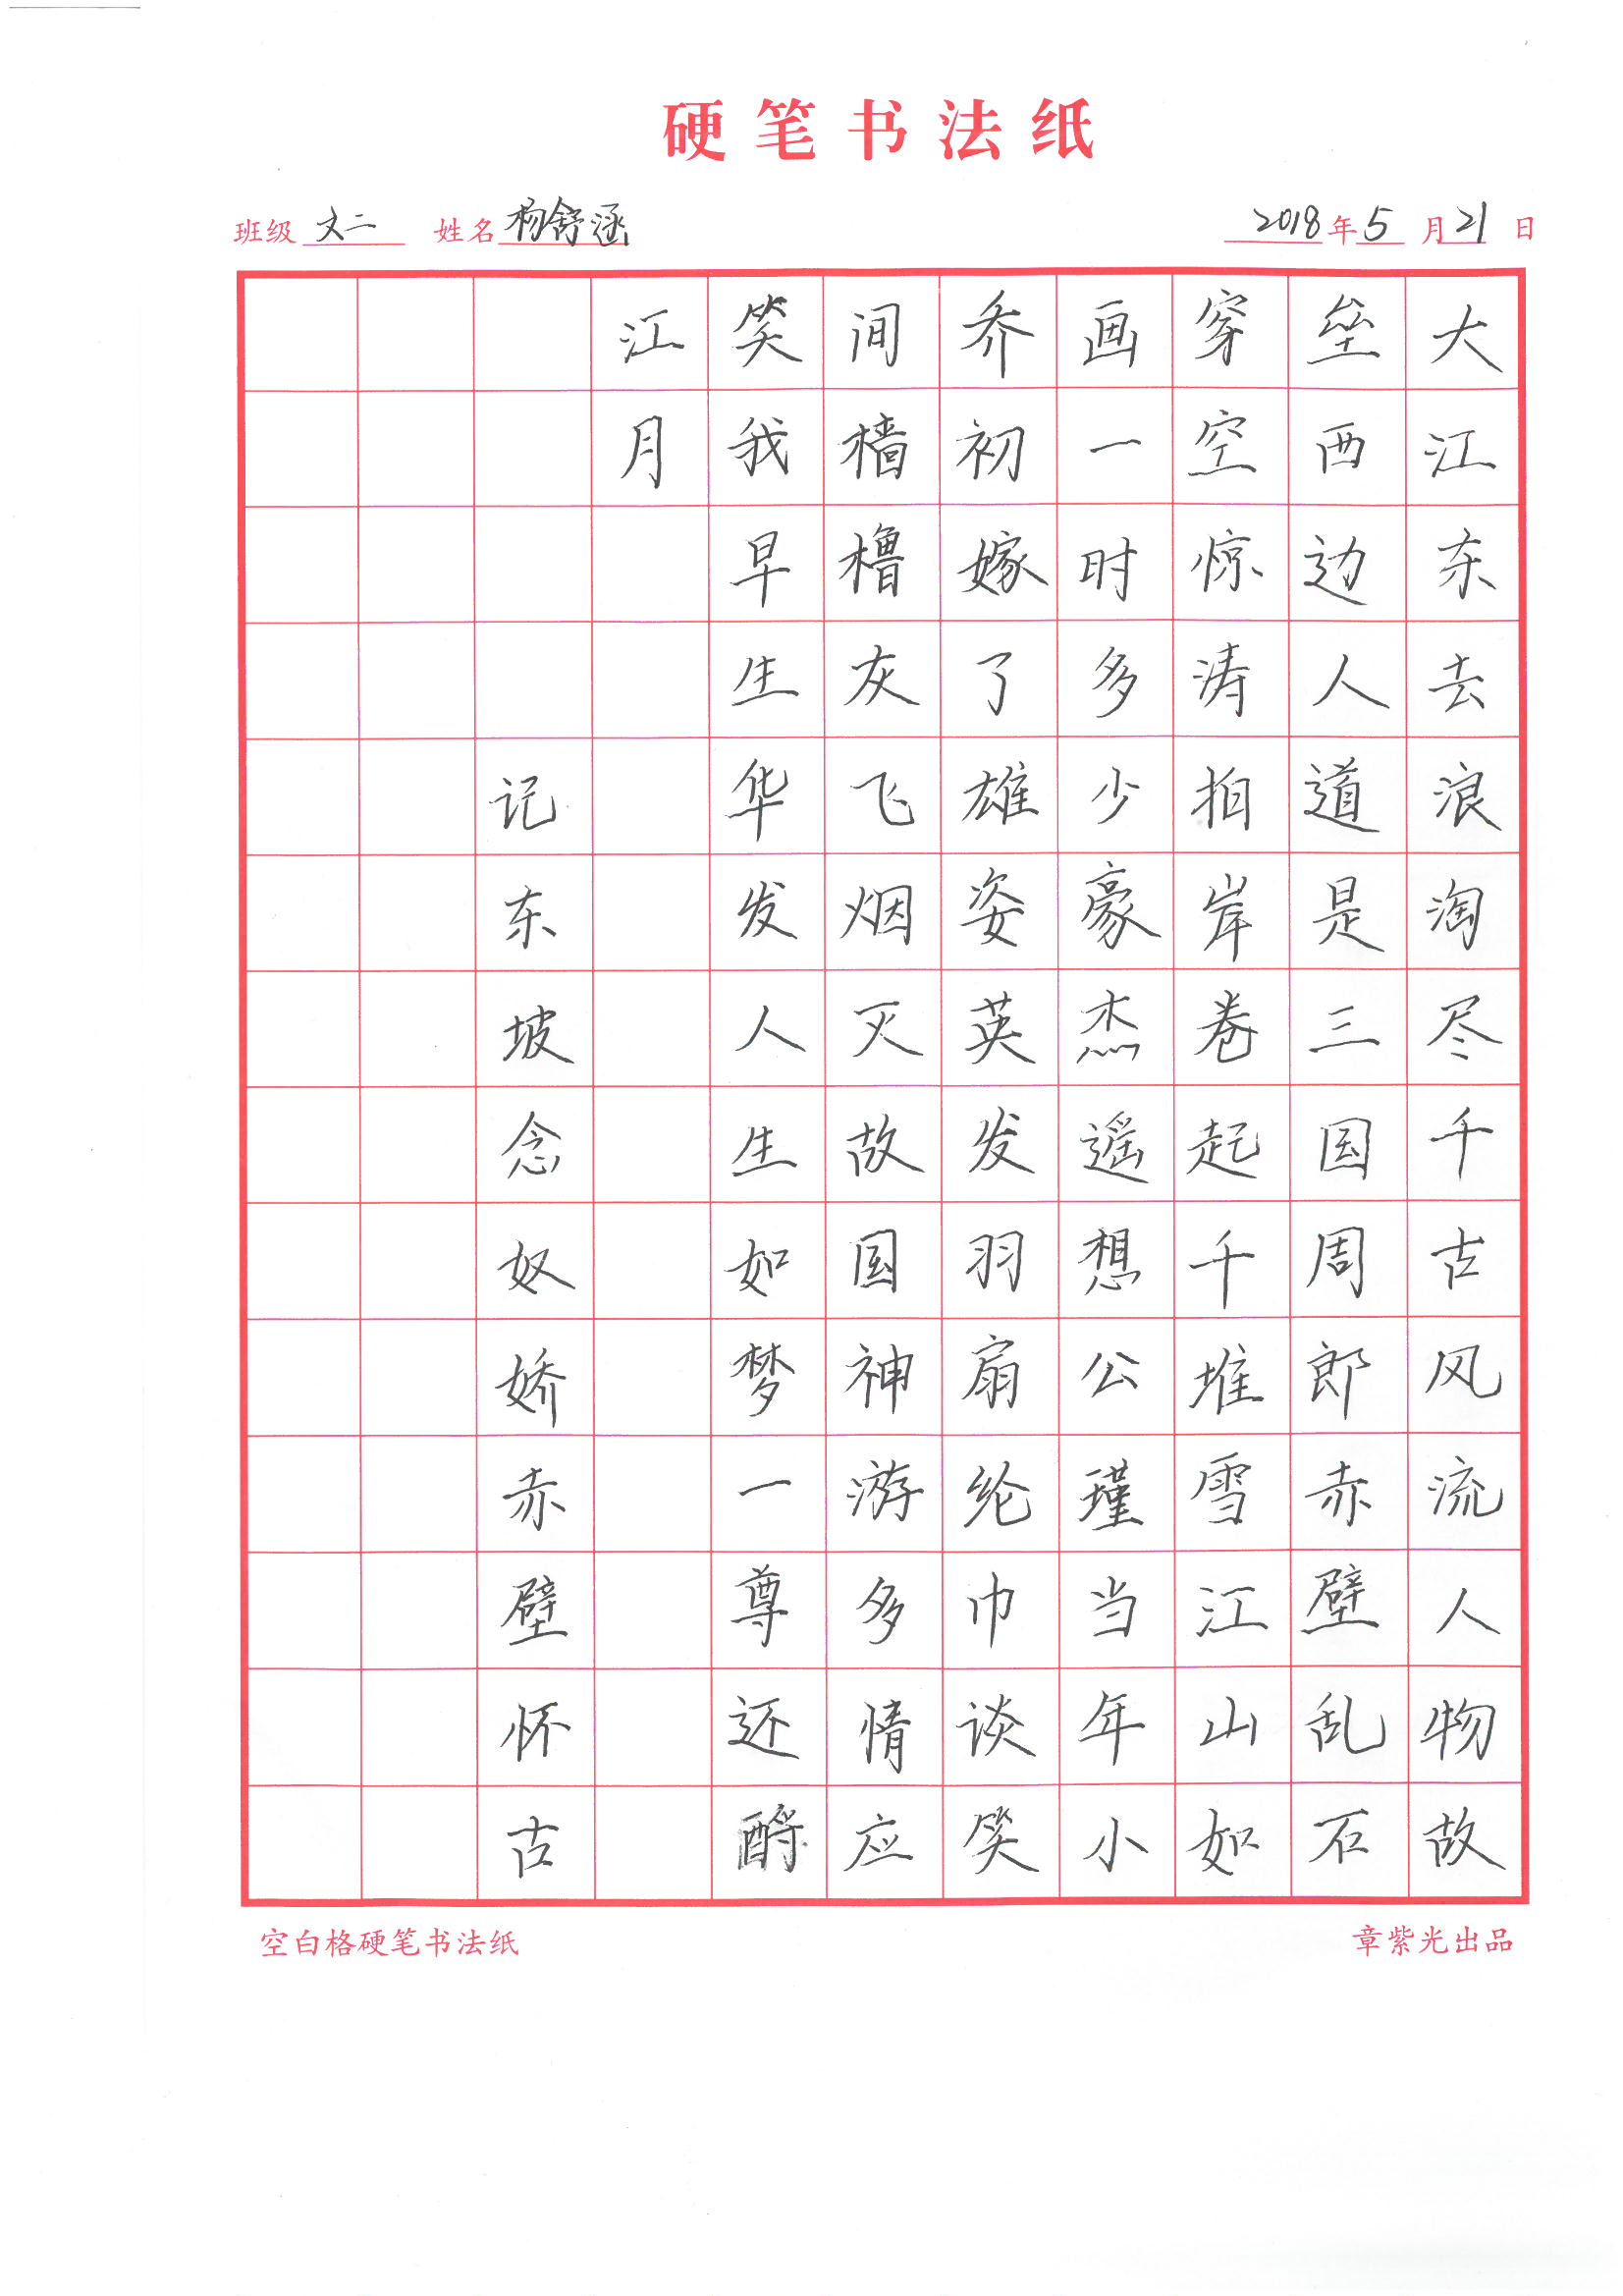 硬笔书法纸
班级 文二 姓名 杨舒涵 2018年5月21日
大江东去浪淘尽千古风流人物故
垒西边人道是三国周郎赤壁乱石
穿空惊涛拍岸卷起千堆雪江山如
画一时多少豪杰遥想公瑾当年小
乔初嫁了雄姿英发羽扇纶巾谈笑
间樯橹灰飞烟灭故国神游多情应
笑我早生华发人生如梦一尊还酹
江月
记东坡念奴娇赤壁怀古
空白格硬笔书法纸 章紫光出品